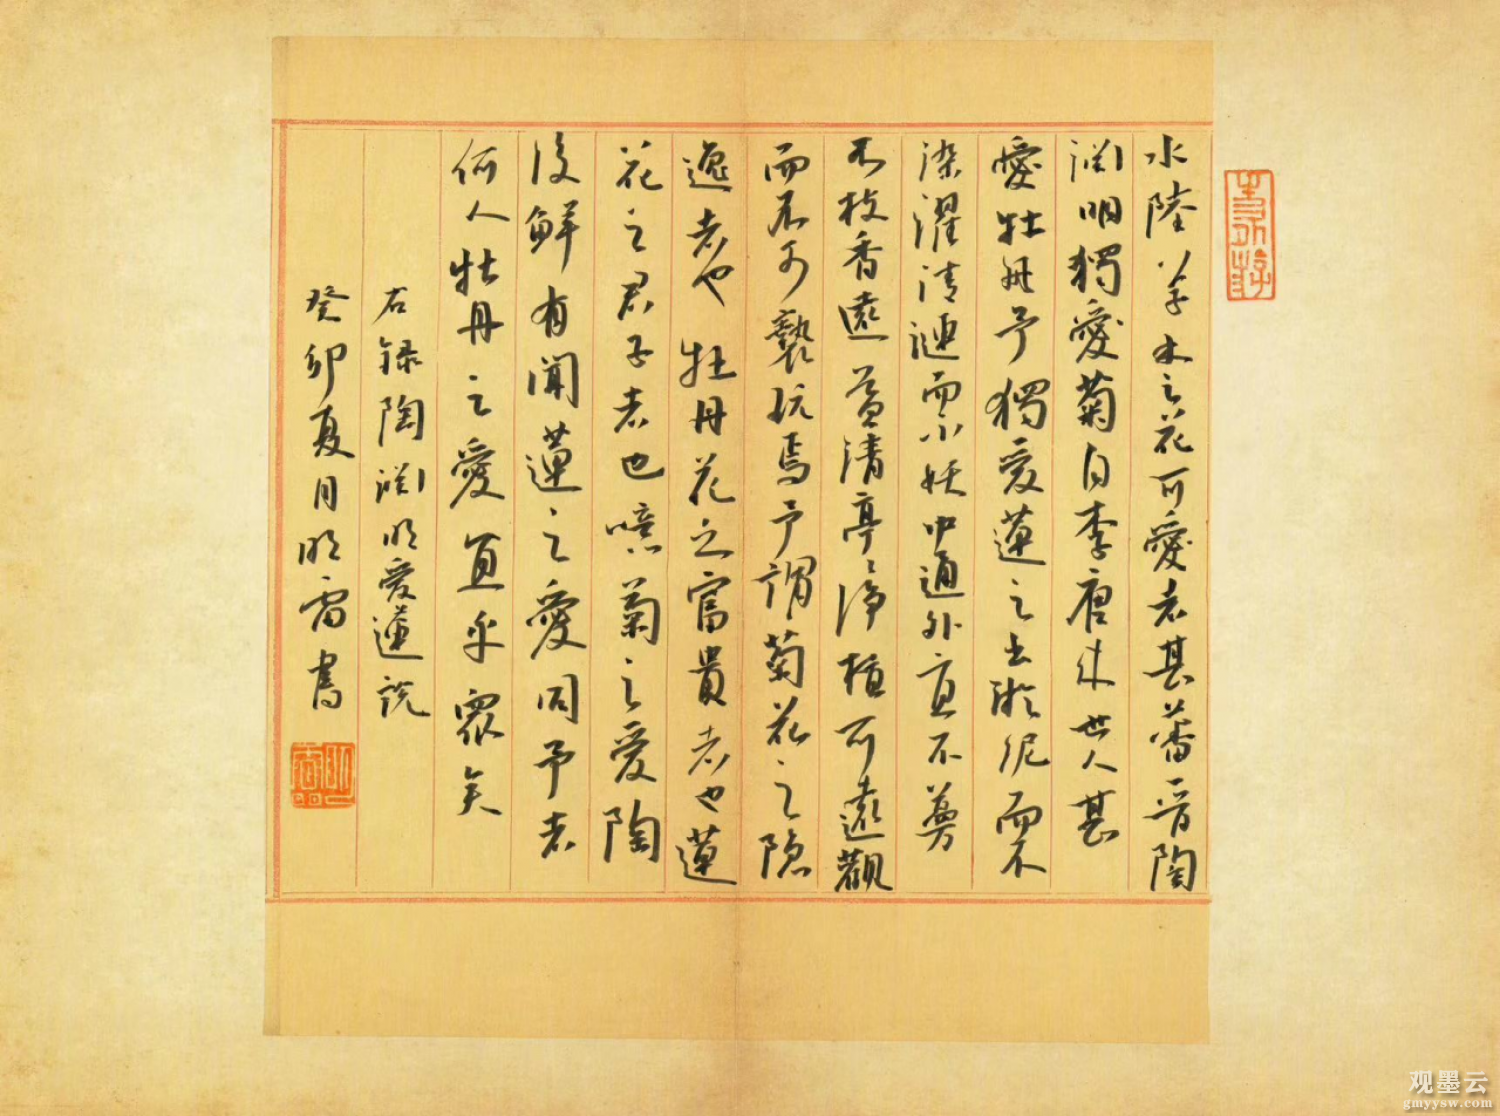 水陸草木之花可愛者甚蕃晉陶
淵明獨愛菊自李唐来世人甚
愛牡丹予獨愛蓮之出淤泥而不
染濯清漣而不妖中通外直不蔓
不枝香遠益清亭〻淨植可遠觀
而不可褻玩焉予謂菊花之隐
逸者也牡丹花之富貴者也蓮
花之君子者也噫菊之愛陶
後鮮有聞蓮之愛同予者
何人牡丹之愛宜乎眾矣
右録陶淵明愛蓮説
癸卯夏月明雷書
观墨云
gmyysw.com